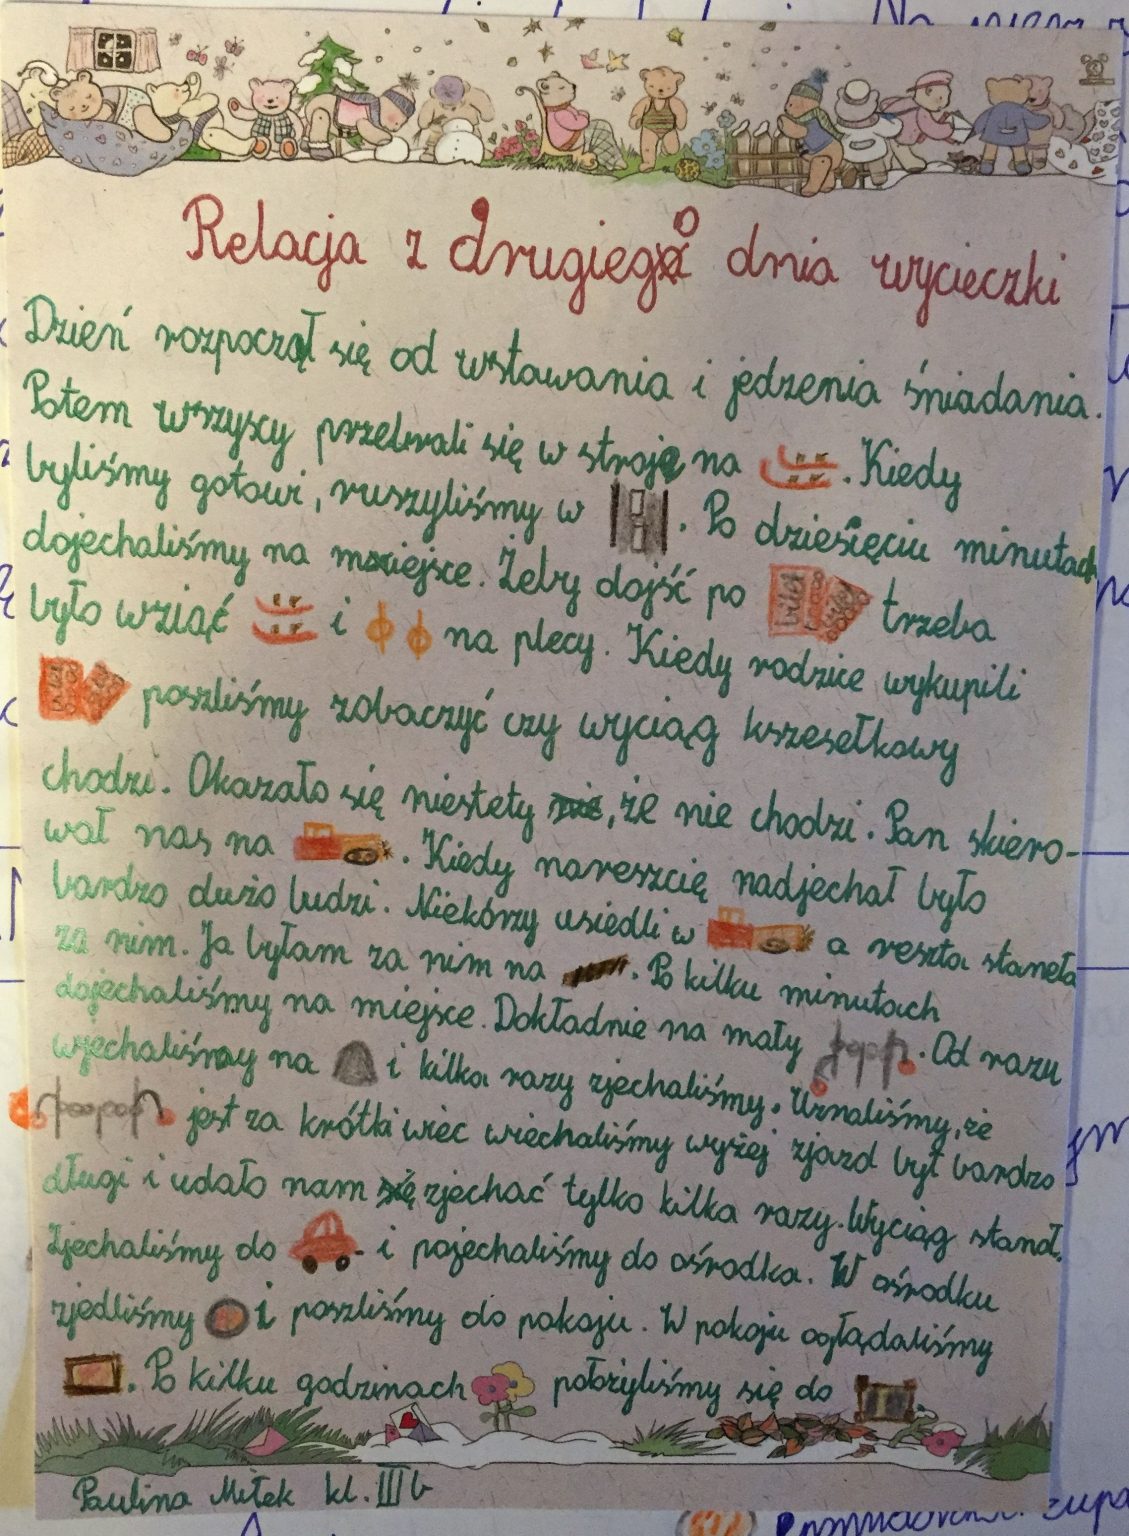 Relacja z drugiego dnia wycieczki
Dzień rozpoczął się od wstawania i jedzenia śniadania.
Potem wszyscy przebrali się w stroje na . Kiedy
byliśmy gotowi, ruszyliśmy w . Po dziesięciu minutach
dojechaliśmy na miejsce. Żeby dojść po bilety trzeba
było wziąć i na plecy. Kiedy rodzice wykupili
poszliśmy zobaczyć czy wyciąg kszesełkowy
chodzi. Okazało się niestety , że nie chodzi. Pan skiero-
wał nas na . Kiedy nareszcię nadjechał było
bardzo dużo ludzi. Niekórzy usiedli w a reszta staneła
za nim. Ja byłam za nim na . Po kilku minutach
dojechaliśmy na miejsce. Dokładnie na mały . Od razu
wjechaliśmy na i kilka razy zjechaliśmy. Uznaliśmy, że
jest za krótki wiec wiechaliśmy wyżej zjazd był bardzo
długi i udało nam się zjechać tylko kilka razy. Wyciąg stanął.
Zjechaliśmy do i pojechaliśmy do ośrodka. W ośrodku
zjedliśmy i poszliśmy do pokoju. W pokoju oglądaliśmy
. Po kilku godzinach położyliśmy się do
Paulina Miłek kl. III b